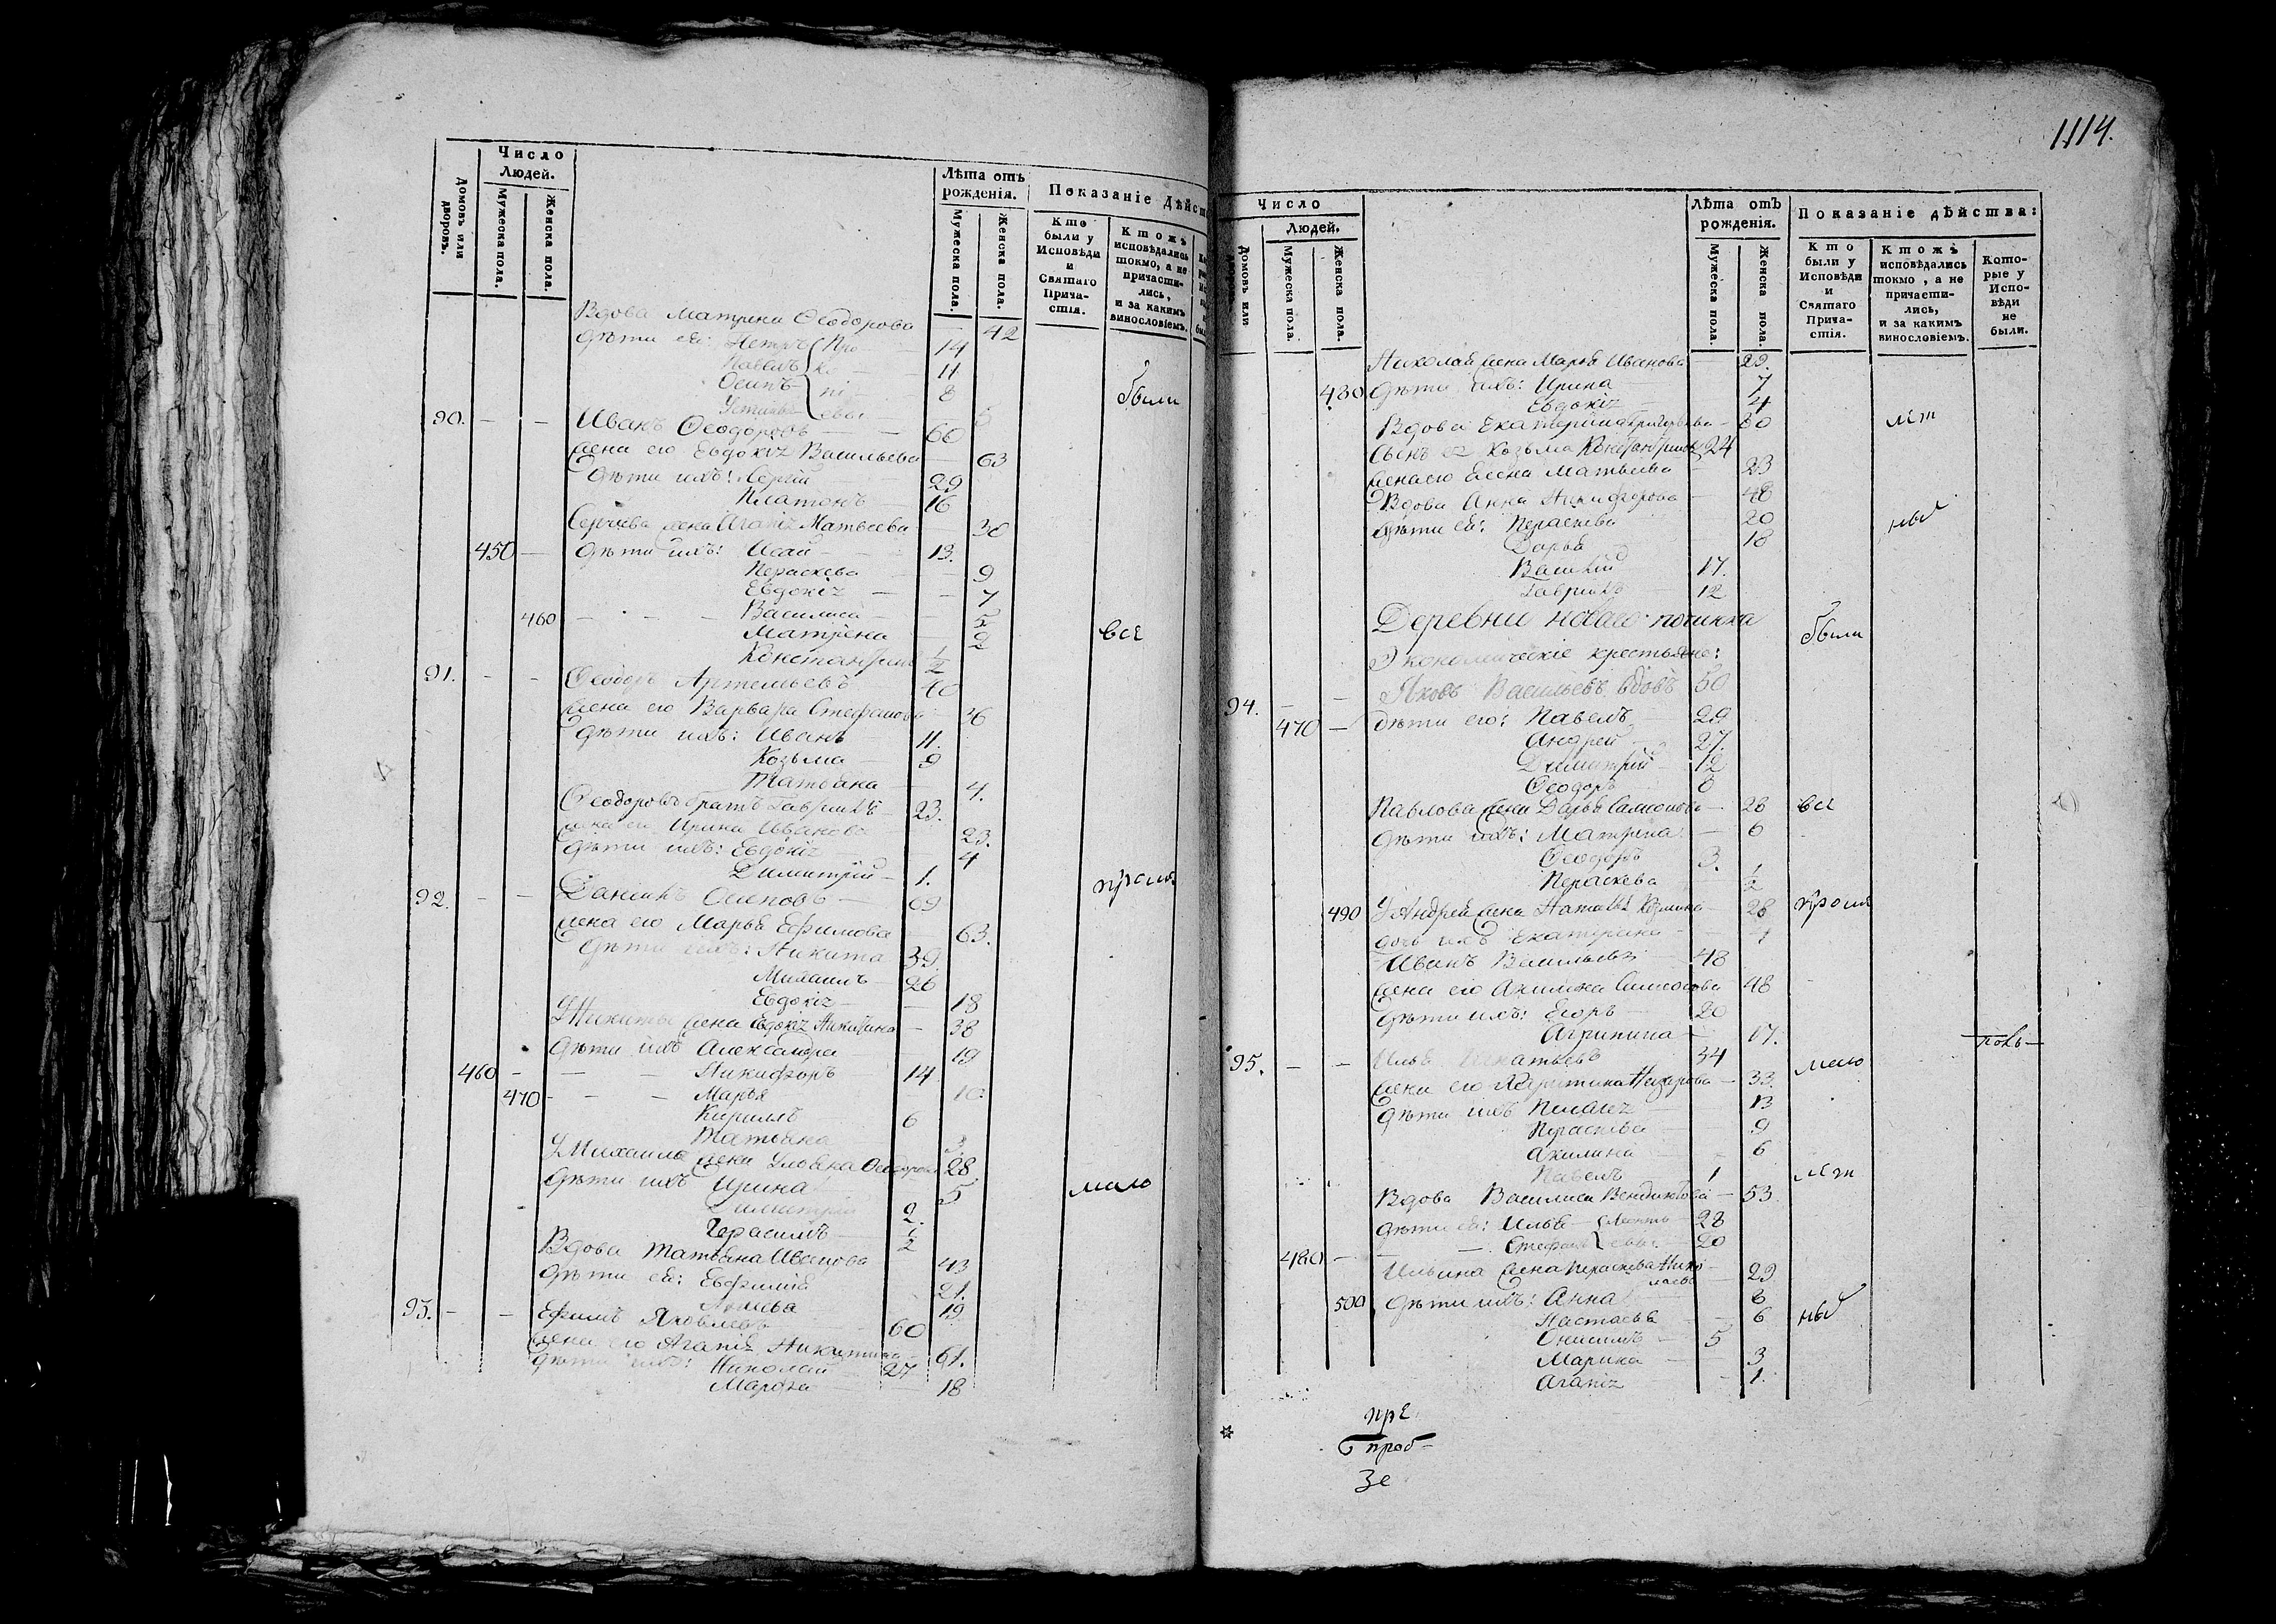 1114.
Число
Людей.
Лѣта отъ
рожденія.
Показаніе Дѣйст
Домовъ или
дворовъ.
Мужеска пола.
Женска пола.
Мужеска пола.
Женска пола.
Кто
были у
Исповѣди
и
Святаго
Прича-
стія.
Ктожъ
исповѣдались
токмо, а не
причасти-
лись,
и за какимъ
винословіемъ.
Вдова Матрена Ѳеодорова — 42
дѣти ея: Петръ 14
Павелъ 11
Осипъ 8
были
90. — — Иванъ Ѳеодоровъ — 60
жена его Евдокія Васильева 63
дѣти ихъ: Сергій 29
Платонъ 16
Сергѣева жена Агапія Матвеева 30
450 — дѣти ихъ: Исай 13.
Пераскева 9
Евдокія — 7
460 Василиса 5
Матрена 2 все
Константинъ 1/2
91. — — Ѳеодоръ Артемьевъ 40
жена его Варвара Стефанова 36
дѣти ихъ: Иванъ 11.
Козьма 9
Татьяна 4.
Ѳеодоровъ братъ Гавріилъ 23.
жена его Ирина Иванова 23.
дѣти ихъ: Евдокія 4
Димитрій — 1.
92. — — Даніилъ Осиповъ — 69
жена его Марья Ефимова 63.
дѣти ихъ: Никита 39
Михаилъ 26
Евдокія — 18
У Никиты жена Евдокія Никитина — 38
дѣти ихъ Александра 19
460 — Никифоръ 14
470 — Марья 10.
Кирилъ 6
Татьяна 3.
У Михаила жена Ульяна Ѳеодорова 28
дѣти ихъ Ирина 5 мало
Димитрій 2.
Герасимъ 1/2
Вдова Татьяна Иванова 43
дѣти ея: 21.
19
93. — — Ефимъ Яковлевъ 60
жена его Агапія Никитина 61.
дѣти ихъ: Николай 27
Марфа 18
Число
Людей.
Лѣта отъ
рожденія.
Показаніе дѣйства:
Домовъ или
Мужеска пола.
Женска пола.
Мужеска пола.
Женска пола.
Кто
были у
Исповѣди
и
Святаго
Прича-
стія.
Ктожъ
исповѣдались
токмо, а не
причасти-
лись,
и за какимъ
винословіемъ.
Кото-
рые у
Испо-
вѣди
не
были.
Николая жена Марья Иванова — 29.
480 дѣти ихъ: Ирина 7
Евдокія 4
Вдова Екатерина Григорьева — 60 лѣт
сынъ ея Козьма Константиновъ 24
жена его Елена Матвеева 23
Вдова Анна Никифорова — 48
дѣти ея: Пераскева 20 ный
Дарья 18
Василій 17.
Гавріилъ 12
Деревни новаго починка были
Экономическіе крестьяне:
94. — — Яковъ Васильевъ вдовъ 50
470 — дѣти его: Павелъ 29
Андрей 27.
Димитрій 12
Ѳеодоръ 8
Павлова жена Дарья Самсонова — 28 все
дѣти ихъ: Матрена — 6
Ѳеодоръ 3.
Пераскева 1/2
490 У Андрея жена Наталья Козмина — 28
дочь ихъ Екатерина — 1
Иванъ Васильевъ 48
жена его Акилина Самсонова 48
дѣти ихъ: Егоръ — 20
Агрипина — 17.
95. — — Илья Игнатьевъ 34 мало
жена его Устинья Назарова — 33.
дѣти ихъ Пелагія 13
Пераскева 9
Акилина 6
Павелъ 1 лѣт
Вдова Василиса Вендиктова — 53
дѣти ея: Илья 28
480 — Стефанъ 20
Ильина жена Пераскева Нико-
лаева 29
500 дѣти ихъ: Анна 8
Настасья 6 ный
Онисимъ 5
Марина 3
Агапія 1